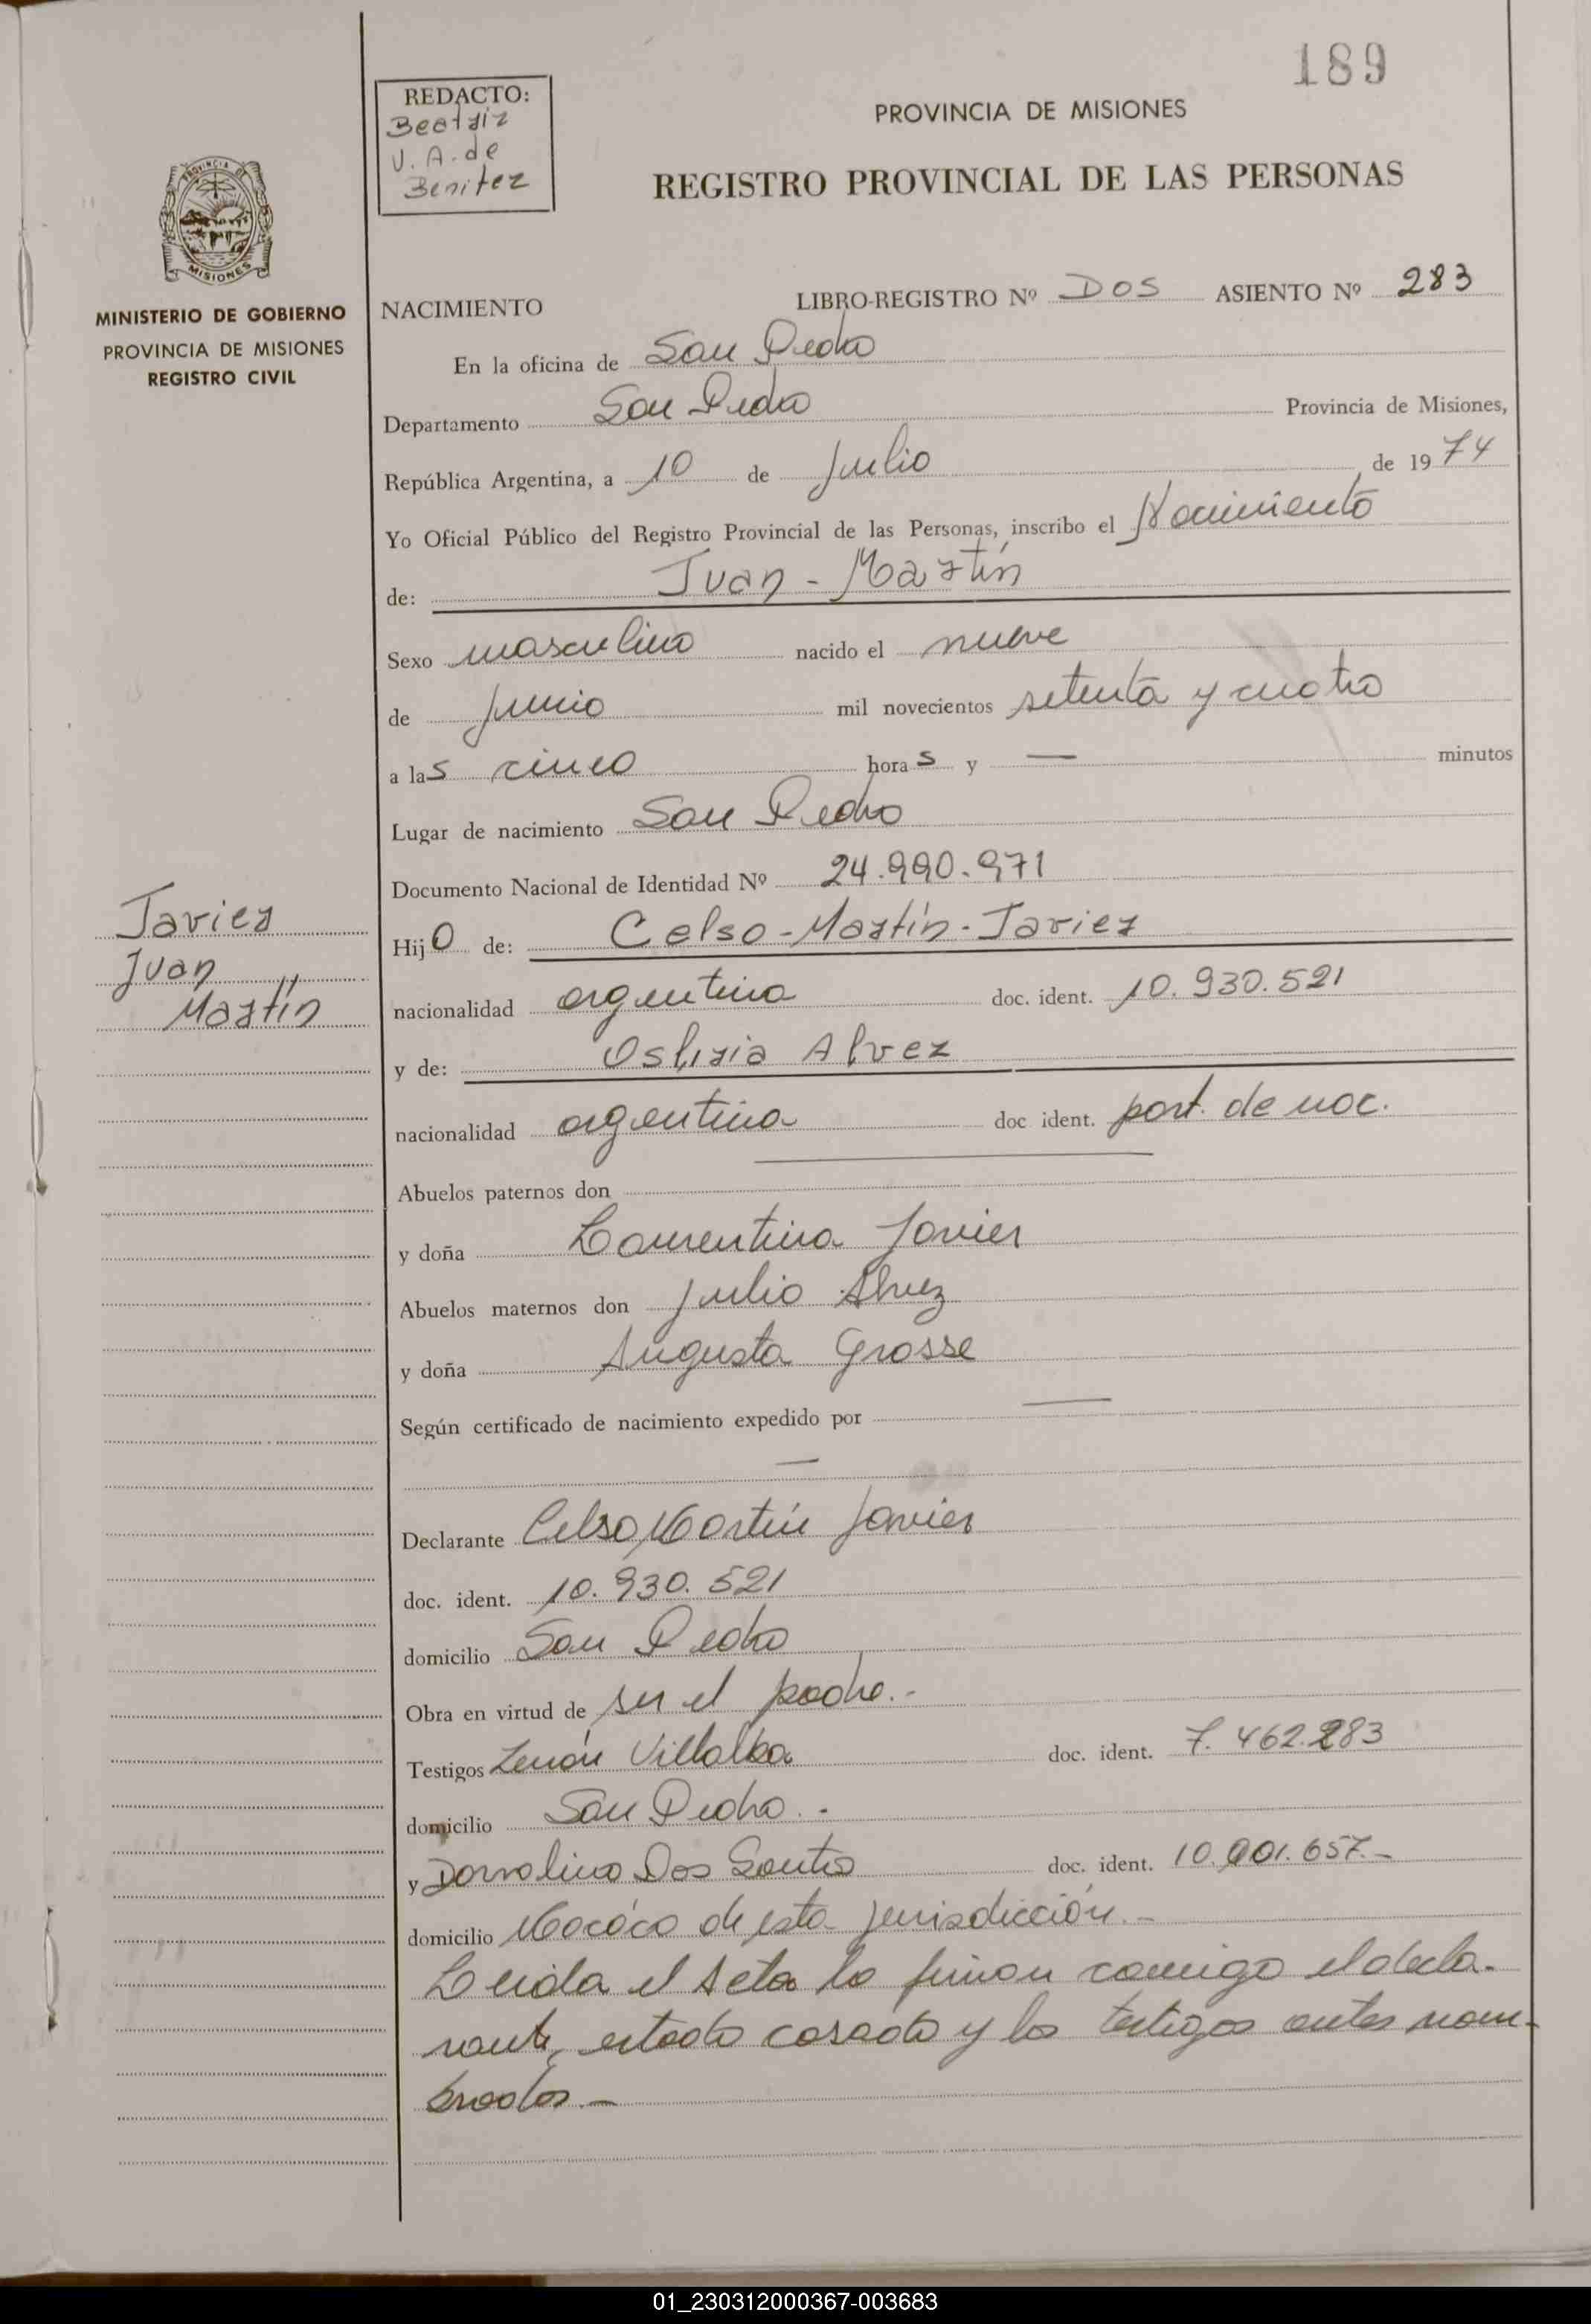 189
REDACTO:
Beatriz
V. A. de
Benitez
PROVINCIA DE MISIONES
REGISTRO PROVINCIAL DE LAS PERSONAS
MISIONES
MINISTERIO DE GOBIERNO
PROVINCIA DE MISIONES
REGISTRO CIVIL
NACIMIENTO LIBRO-REGISTRO Nº DOS ASIENTO Nº 283
En la oficina de San Pedro
Departamento San Pedro Provincia de Misiones,
República Argentina, a 10 de Julio de 1974
Yo Oficial Público del Registro Provincial de las Personas, inscribo el Nacimiento
de: Juan - Martín
Sexo masculino nacido el nueve
de Junio mil novecientos setenta y cuatro
a las cinco horas y — minutos
Lugar de nacimiento San Pedro
Documento Nacional de Identidad Nº 24.990.971
Javier
Juan
Martín
Hijo de: Celso - Martín - Javier
nacionalidad argentina doc. ident. 10.930.521
y de: Alvez
nacionalidad argentina doc ident. part. de nac.
Abuelos paternos don
y doña Laurentina Javier
Abuelos maternos don Julio Alvez
y doña Augusta Grosse
Según certificado de nacimiento expedido por —
—
Declarante Celso Martín Javier
doc. ident. 10.930.521
domicilio San Pedro
Obra en virtud de ser el padre.-
Testigos Zenón Villalba doc. ident. 7.462.283
domicilio San Pedro.-
y Dorvalino Dos Santos doc. ident. 10.001.657.-
domicilio de esta jurisdicción.-
Leida el Acta la firman conmigo el decla-
rante, estado casado y los testigos antes nom-
brados.—
01_230312000367-003683